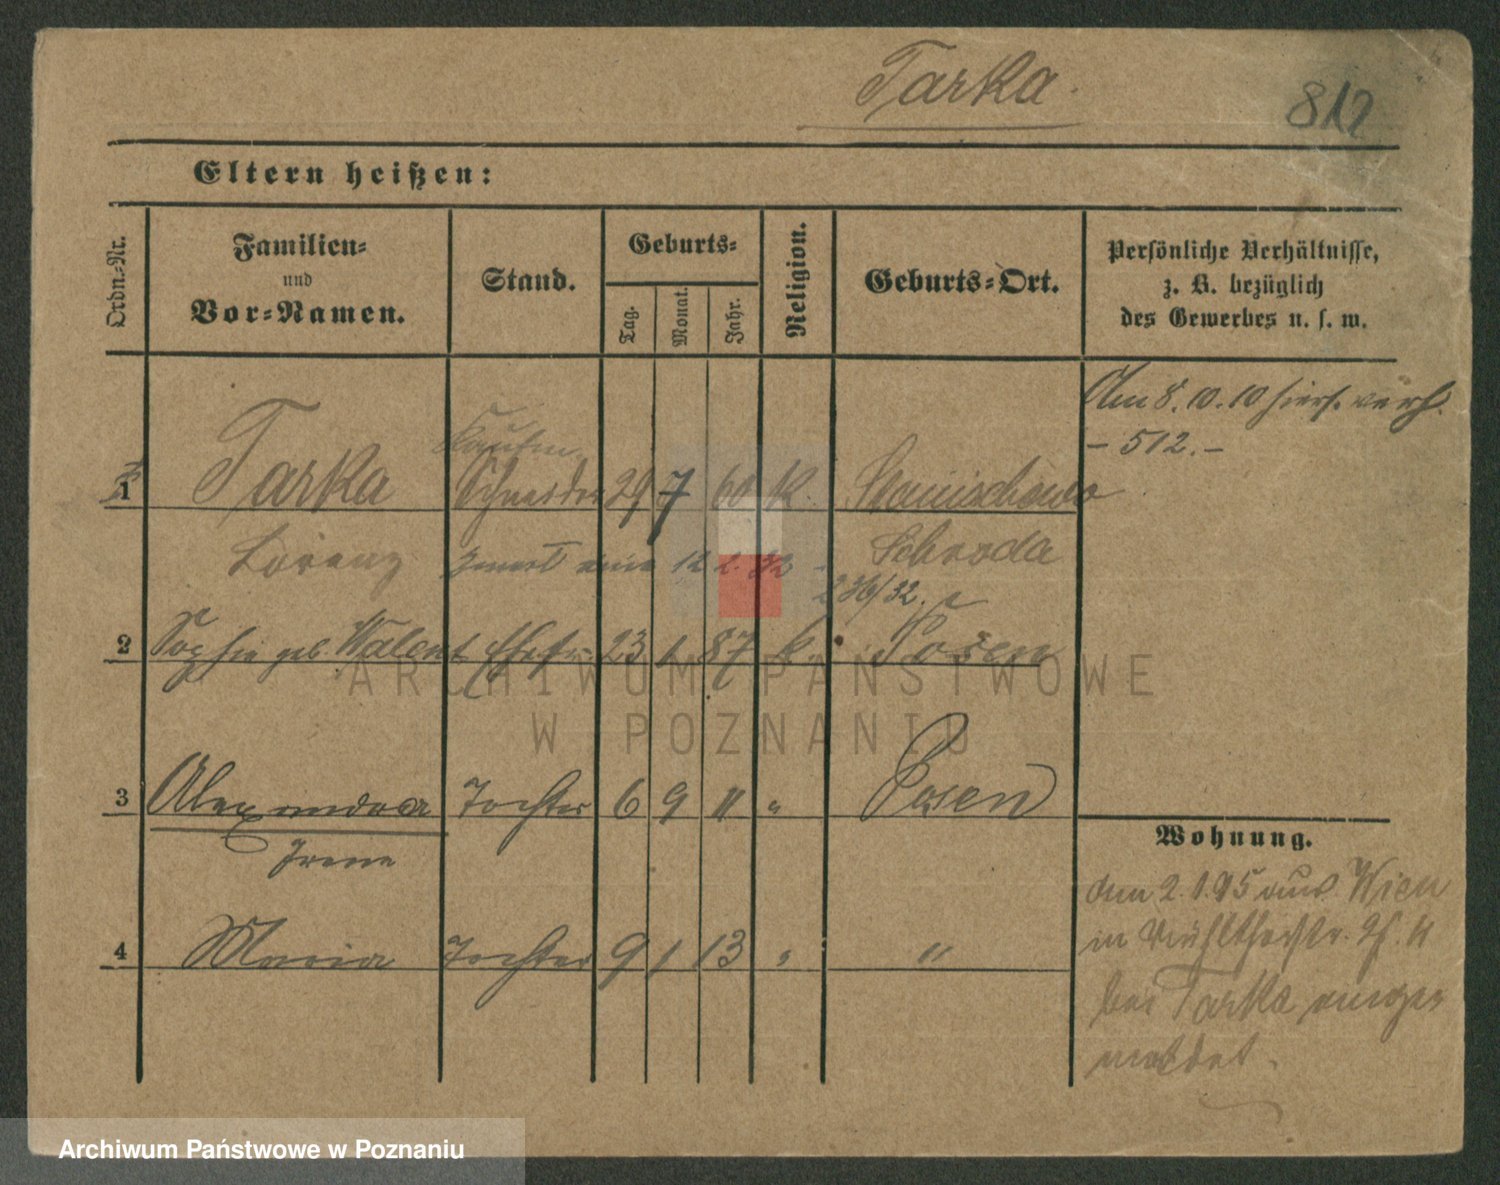 Tarka.
812
Eltern heißen:
Ordn.-Nr.
Familien-
und
Vor-Namen.
Stand.
Geburts-
Tag.
Monat.
Jahr.
Religion.
Geburts-Ort.
Persönliche Verhältnisse,
z. B. bezüglich
des Gewerbes u. s. w.
Am 8.10.10 hiers. verh.
- 512. -
1 Tarka Schneider 29 7 60 K.
Lorenz 12 2. 32 Schroda
236/32.
2 Sophie geb. Walent Ehefr. 23 1 87 k. Posen
3 Alexandra Tochter 6 9 11 " Posen
Irene
4 Maria Tochter 9 1 13 " "
Wohnung.
am 2.1.95 aus Wien
in Mühlthorstr.
bei Tarka ange-
meldet.
ARCHIWUM PAŃSTWOWE
W POZNANIU
Archiwum Państwowe w Poznaniu